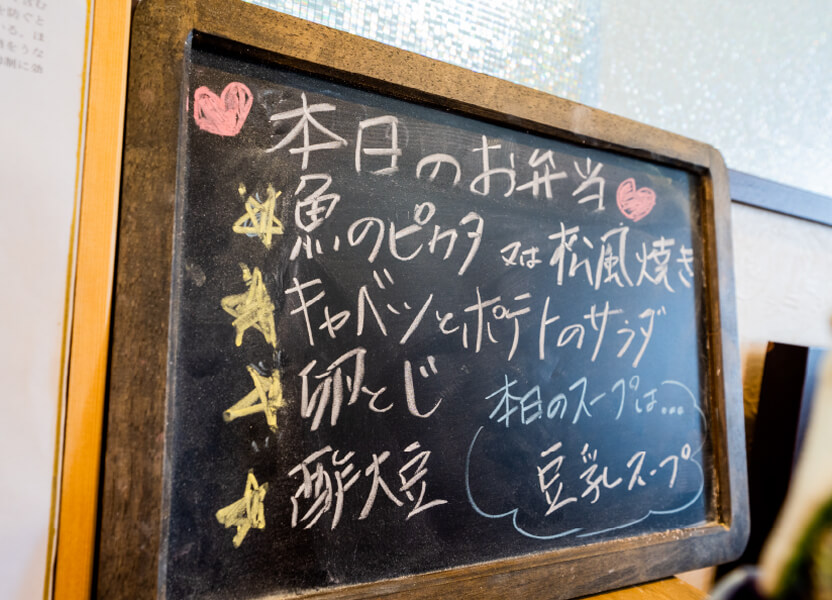 本日のお弁当
魚のピカタ 又は 松風焼き
キャベツとポテトのサラダ
卵とじ
酢大豆
本日のスープは…
豆乳スープ